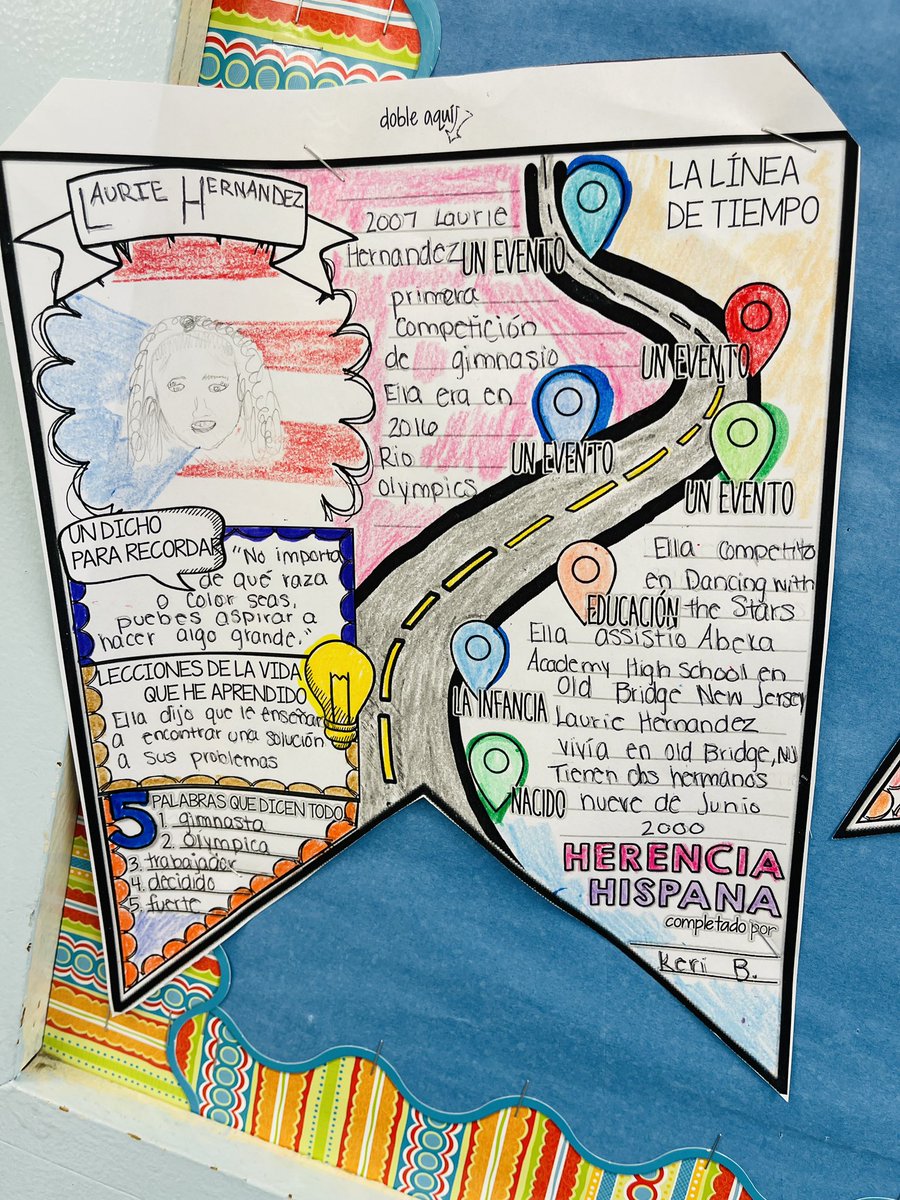 doble aquí
LAURIE HERNANDEZ
LA LÍNEA
DE TIEMPO
2007 Laurie
Hernandez
UN EVENTO
primera
Competición
de gimnasio
UN EVENTO
Ella era en
2016
Rio
Olympics
UN EVENTO
UN EVENTO
Ella Competito
en Dancing with
the Stars
EDUCACIÓN
Ella assistio Abeka
Academy High School en
Old Bridge New Jersey
LA INFANCIA
Laurie Hernandez
vivía en Old Bridge, NJ
Tienen dos hermanos
NACIDO
nueve de Junio
2000
UN DICHO
PARA RECORDAR
"No importa
de qué raza
o color seas,
puebes aspirar a
hacer algo grande."
LECCIONES DE LA VIDA
QUE HE APRENDIDO
Ella dijo que le enseñar
a encontrar una solución
a sus problemas
5 PALABRAS QUE DICEN TODO
1. gimnasta
2. Olympica
3. trabajador
4. decidido
5. fuerte
HERENCIA
HISPANA
completado por
Keri B.